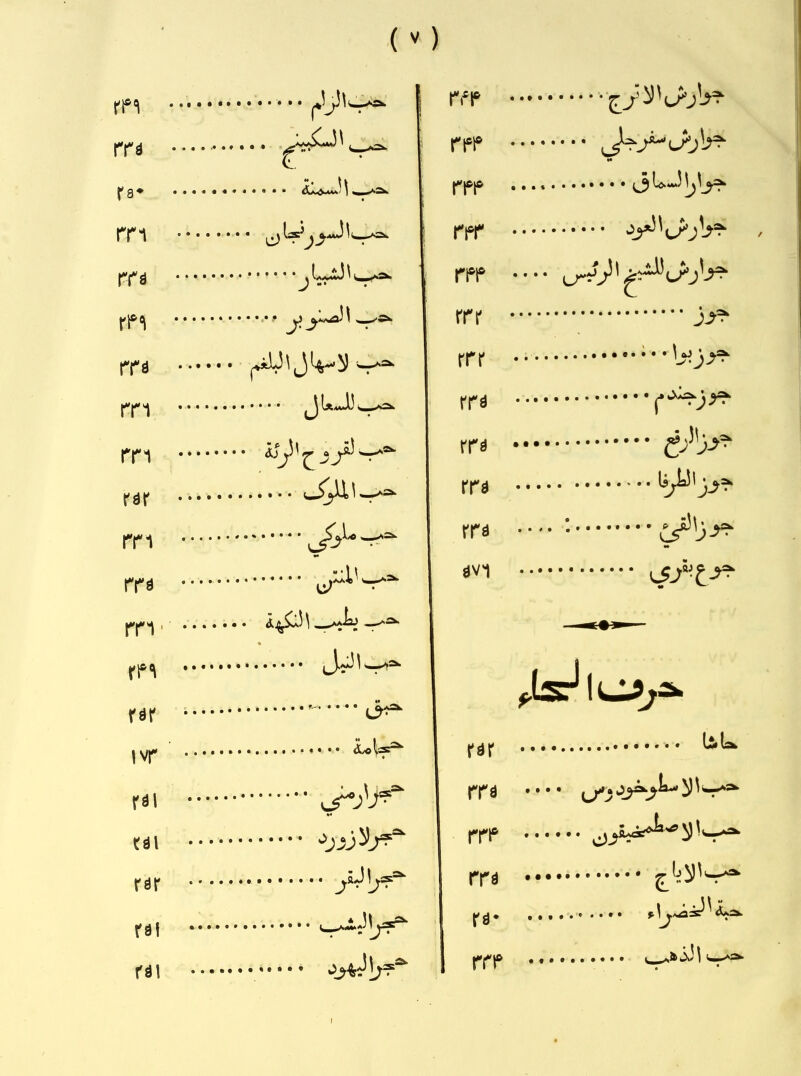 ( ٧ )
جوارش الاترج ٢٤٤
جوارش السفرجلي ٢٤٤
جوار السماق ٢٤٤
جوارش العود ٢٤٣
جوز ٢٣٢
جوز بوا ٢٣٢
جوز جندم ٢٣٥
جوز الزنج ٢٣٥
جوز الطرفا ٢٣٥
جوز القي ٢٣٥
جوع بقري ٥٧٦
حرف الحاء
حب الاسطوخودوس ٢٣٥
٢٣٤
٢٣٥
حبة الخضراء ٢٥٠
حب الذهب ٢٣٤
حب الزلم ٢٤٩
حب السكبينج ٢٣٥
حب السمنة ٢٥٠
حب السورنجان ٢٣٦
حب الشبيار ٢٣٥
حب الصنوبر ٢٤٩
حب لاسهال البلغم ٢٣٥
حب للسعال ٢٣٦
حب لقروح الرية ٢٣٦
حب الملوك ٢٥٣
حب ملوكي ٢٣٦
حب المنتن ٢٣٥
حب يطيب النكهة ٢٣٦
حب النيل ٢٤٩
حبق ٢٥٣
حجامة ١٧٣
حجر ارمني ٢٥١
حجر لازورد ٢٥١
حجر البقر ٢٥٢
حجر اليشب ٢٥١
حجر اليهود ٢٥١